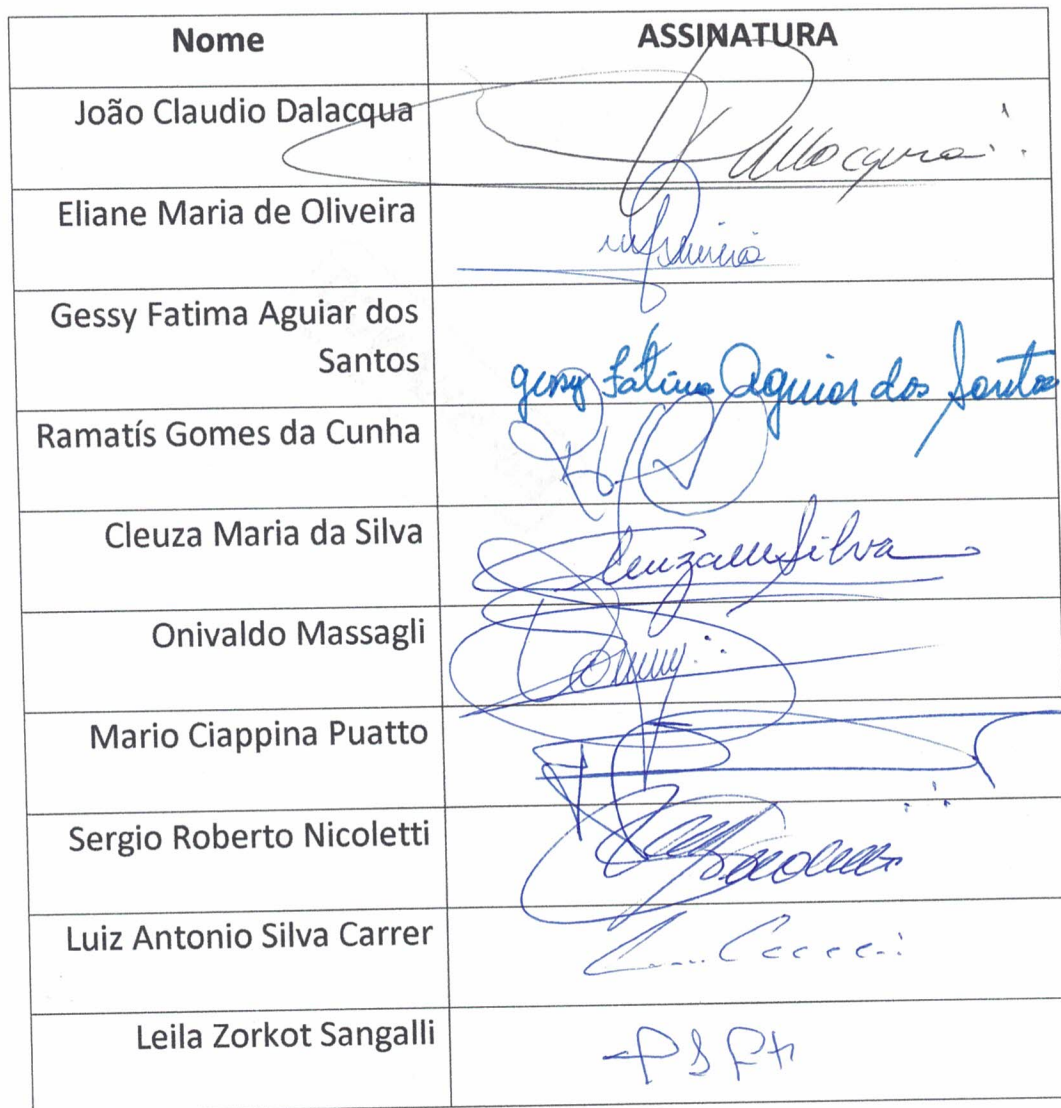 Nome ASSINATURA
João Claudio Dalacqua
Eliane Maria de Oliveira
Gessy Fatima Aguiar dos
Santos
Gessy Fatima Aguiar dos Santos
Ramatís Gomes da Cunha
Cleuza Maria da Silva CleuzamSilva
Onivaldo Massagli
Mario Ciappina Puatto
Sergio Roberto Nicoletti
Luiz Antonio Silva Carrer
Leila Zorkot Sangalli